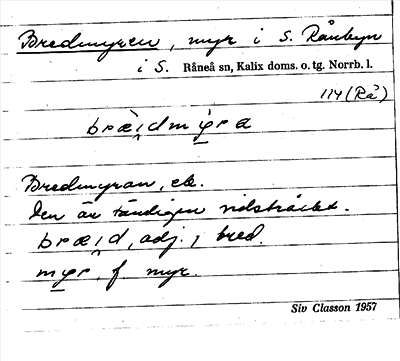 Bredmyren, myr i S. Rånbyn
i S. Råneå sn, Kalix doms. o. tg. Norrb. l.
114 (Rå)
bræi̯dmỳra
Bredmyran, ek.
Den är tämligen vidsträckt.
bræi̯d, adj., bred.
myr, f. myr.
Siv Classon 1957